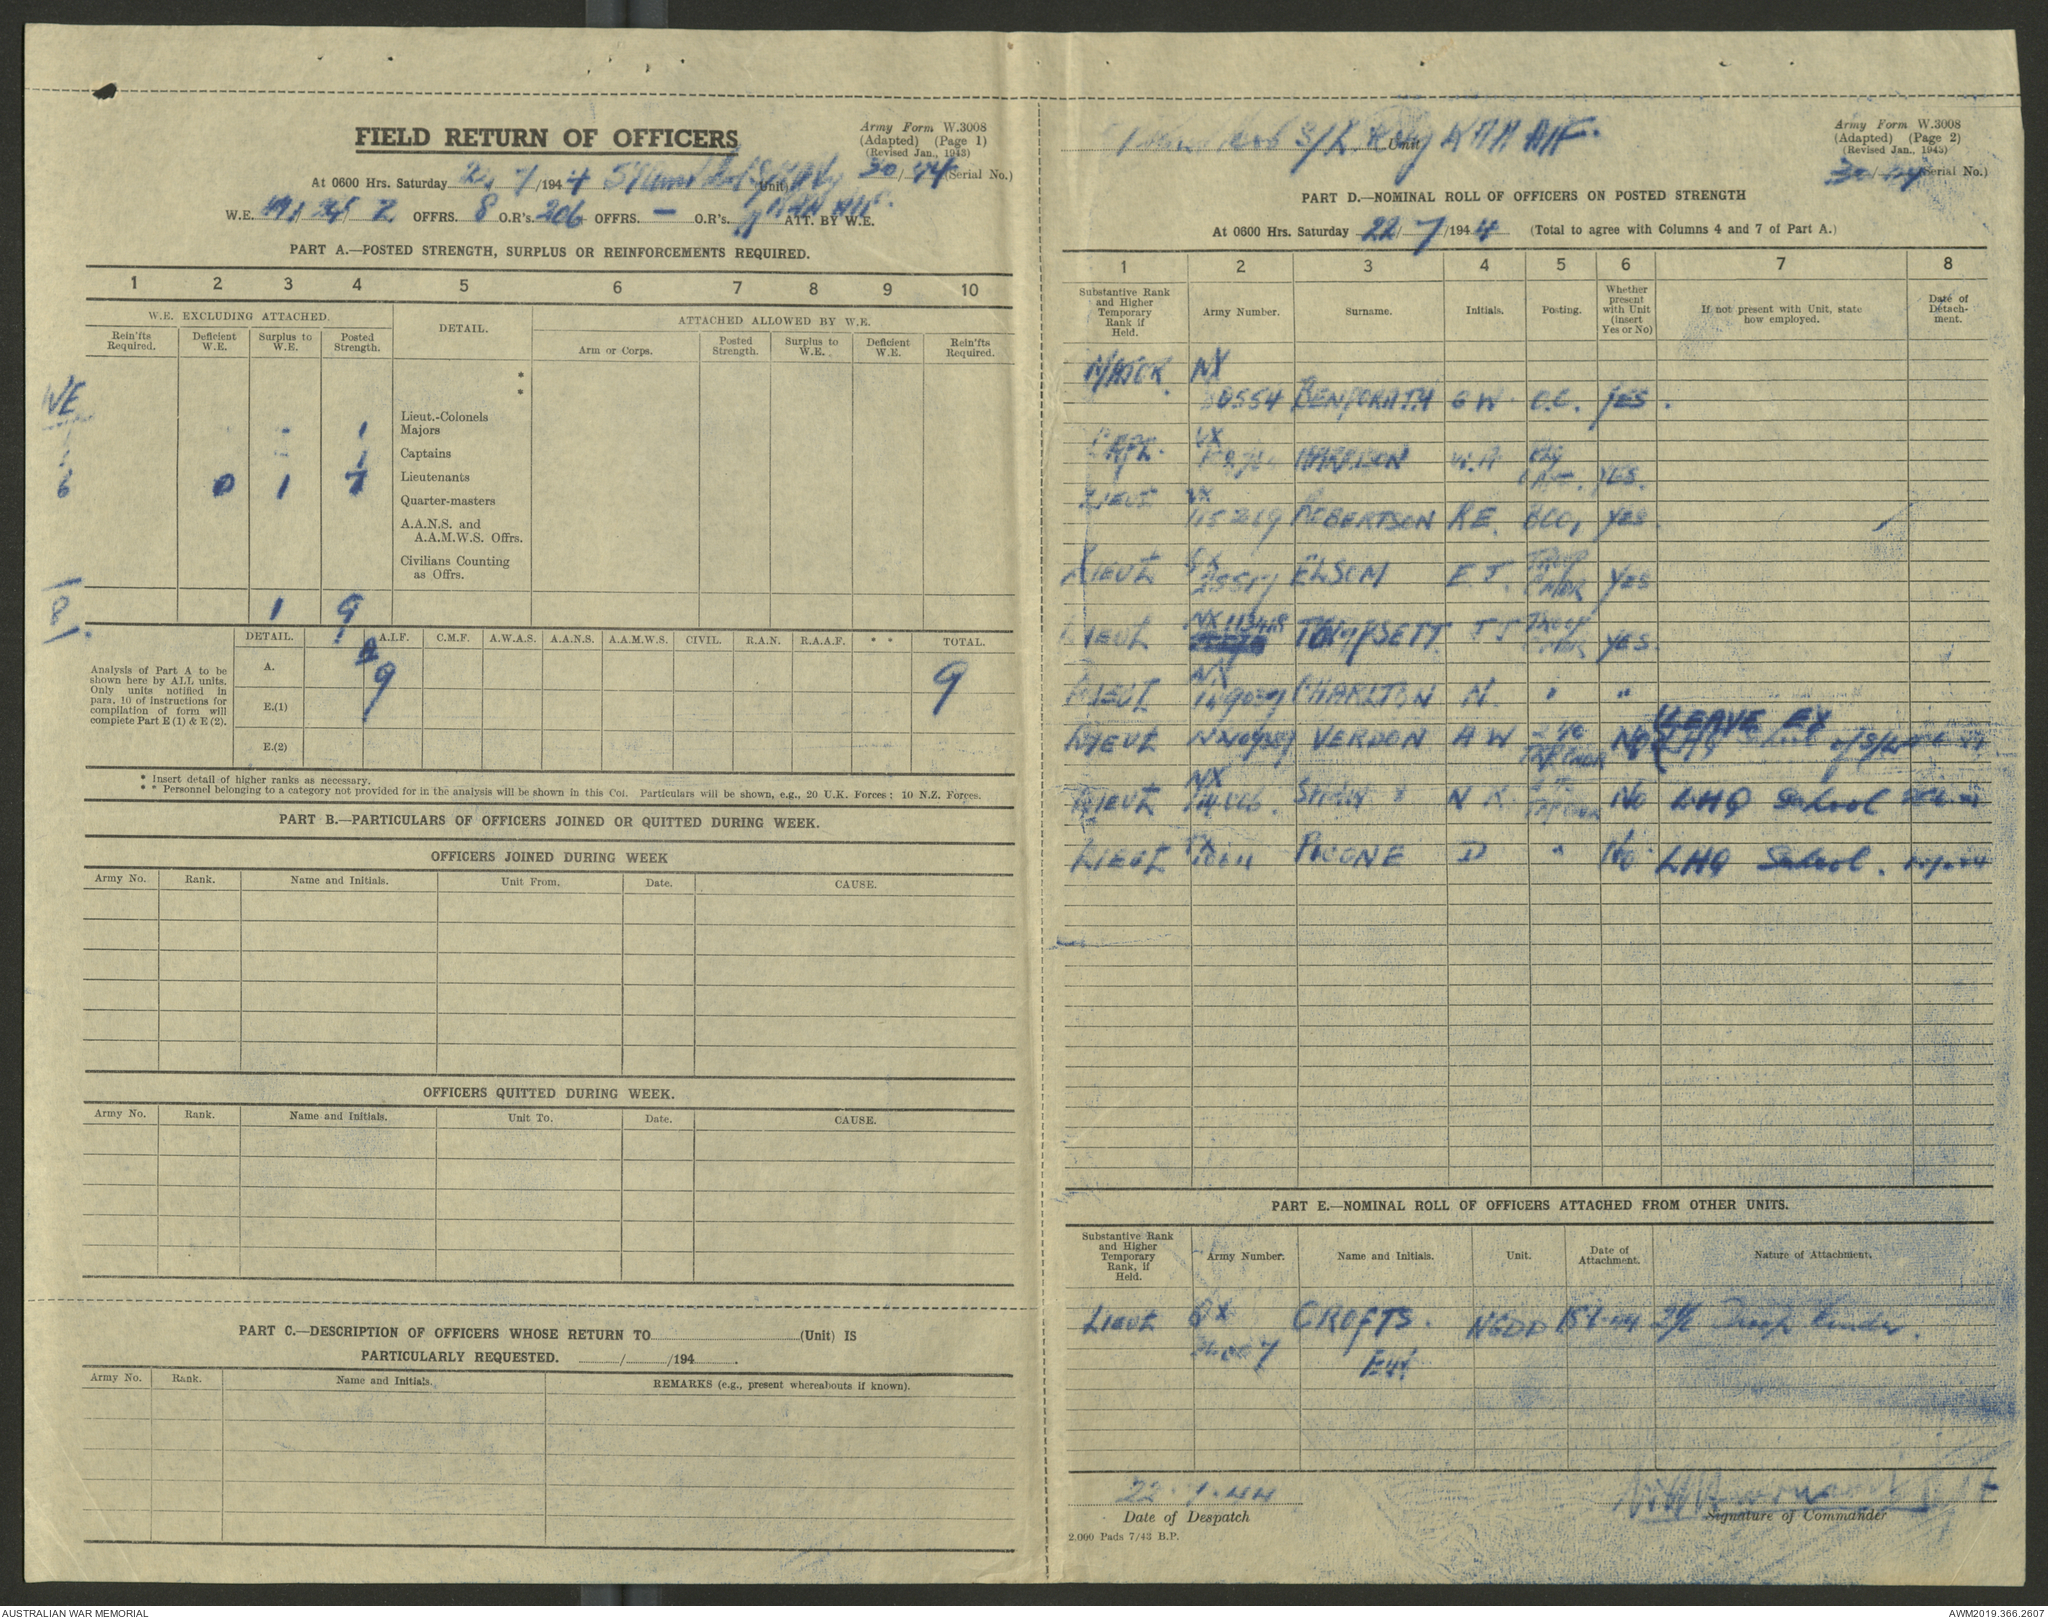 FIELD RETURN OF OFFICERS
Army Form W.3008
(Adapted) (Page 1)
(Revised Jan., 1943)
At 0600 Hrs. Saturday 7/1944 (Unit) 30/74 (Serial No.)
W.E. OFFRS. 8 O.R's. 206 OFFRS. — O.R's. ATT. BY W.E.
PART A.—POSTED STRENGTH, SURPLUS OR REINFORCEMENTS REQUIRED.
1 2 3 4 5 6 7 8 9 10
W.E. EXCLUDING ATTACHED. DETAIL. ATTACHED ALLOWED BY W.E.
Rein'fts Required. Deficient W.E. Surplus to W.E. Posted Strength. Arm or Corps. Posted Strength. Surplus to W.E. Deficient W.E. Rein'fts Required.
*
*
WE
Lieut.-Colonels
1 - 1 Majors
1 - 1 Captains
6 0 1 7 Lieutenants
Quarter-masters
A.A.N.S. and
A.A.M.W.S. Offrs.
Civilians Counting
as Offrs.
8 1 9
DETAIL. A.I.F. C.M.F. A.W.A.S. A.A.N.S. A.A.M.W.S. CIVIL. R.A.N. R.A.A.F. * * TOTAL.
Analysis of Part A to be
shown here by ALL units.
Only units notified in
para. 10 of instructions for
compilation of form will
complete Part E (1) & E (2).
A. 9 9
E.(1)
E.(2)
* Insert detail of higher ranks as necessary.
* * Personnel belonging to a category not provided for in the analysis will be shown in this Col. Particulars will be shown, e.g., 20 U.K. Forces; 10 N.Z. Forces.
PART B.—PARTICULARS OF OFFICERS JOINED OR QUITTED DURING WEEK.
OFFICERS JOINED DURING WEEK
Army No. Rank. Name and Initials. Unit From. Date. CAUSE.
OFFICERS QUITTED DURING WEEK.
Army No. Rank. Name and Initials. Unit To. Date. CAUSE.
PART C.—DESCRIPTION OF OFFICERS WHOSE RETURN TO (Unit) IS
PARTICULARLY REQUESTED. / /194 .
Army No. Rank. Name and Initials. REMARKS (e.g., present whereabouts if known).
S/L Bty RAA AIF. Unit
Army Form W.3008
(Adapted) (Page 2)
(Revised Jan., 1943)
(Serial No.)
PART D.—NOMINAL ROLL OF OFFICERS ON POSTED STRENGTH
At 0600 Hrs. Saturday 22/7/1944 (Total to agree with Columns 4 and 7 of Part A.)
1 2 3 4 5 6 7 8
Substantive Rank and Higher Temporary Rank if Held. Army Number. Surname. Initials. Posting. Whether present with Unit (insert Yes or No) If not present with Unit, state how employed. Date of Detachment.
MAJOR NX BENPORATH G W O.C. YES.
CAPT. VX HARRISON W.A YES.
LIEUT VX ROBERTSON R E. YES.
LIEUT ELSOM E. J. TROOP CMDR YES
LIEUT NX113418 TOMPSETT J J TROOP CMDR YES.
LIEUT NX CHARLTON N. " "
LIEUT VERDON A W NO LEAVE EX
LIEUT NX N K. NO LHQ School
LIEUT D " No. LHQ School.
PART E.—NOMINAL ROLL OF OFFICERS ATTACHED FROM OTHER UNITS.
Substantive Rank and Higher Temporary Rank, if Held. Army Number. Name and Initials. Unit. Date of Attachment. Nature of Attachment.
LIEUT QX CROFTS. NGDD
22.7.44
Date of Despatch
Signature of Commander
2,000 Pads 7/43 B.P.
AUSTRALIAN WAR MEMORIAL
AWM2019.366.2607